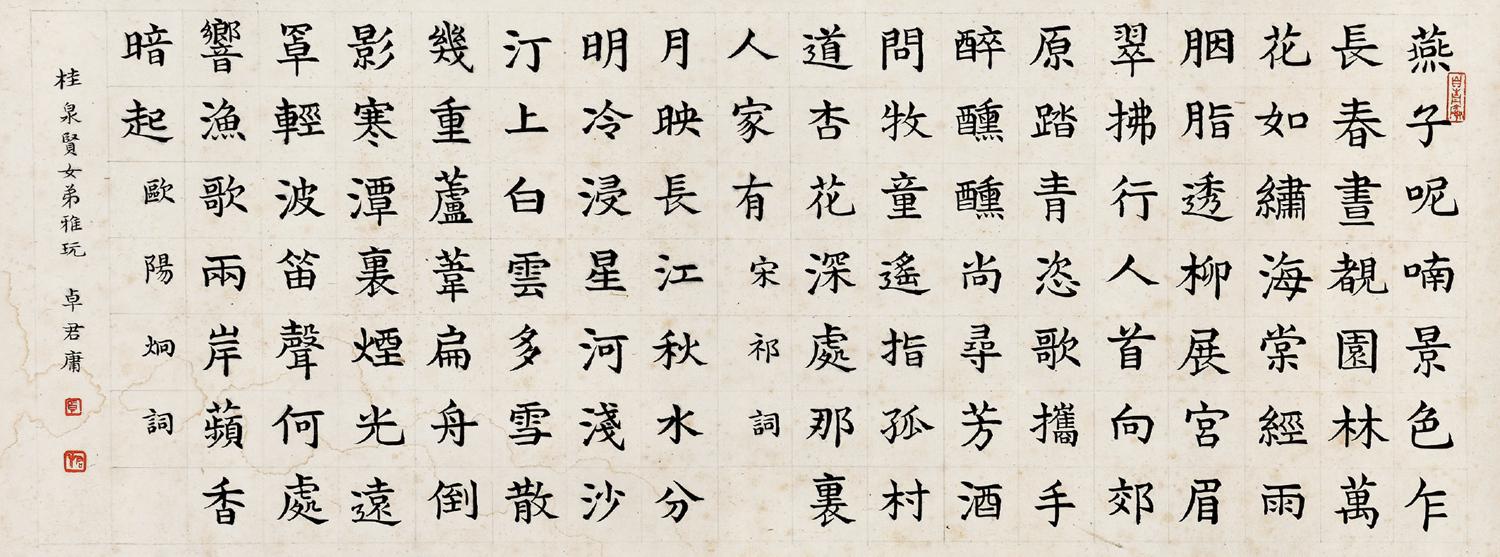 燕子呢喃景色乍
長春晝覩園林萬
花如繡海棠經雨
胭脂透柳展宮眉
翠拂行人首向郊
原踏青恣歌攜手
醉醺醺尚尋芳酒
問牧童遙指孤村
道杏花深處那裏
人家有宋祁詞
月映長江秋水分
明冷浸星河淺沙
汀上白雲多雪散
幾重蘆葦扁舟倒
影寒潭裏煙光遠
罩輕波笛聲何處
響漁歌兩岸蘋香
暗起歐陽炯詞
桂泉賢女弟雅玩 卓君庸